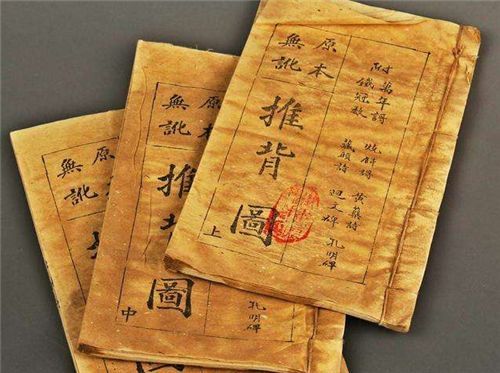 附
萬年謌 燒餅謌 黃蘗詩
鐵冠數 藏頭詩 迴文碑 孔明碑
原本
無訛
推背圖
上
孔明碑
原本
無訛
推背圖
中
原
無訛